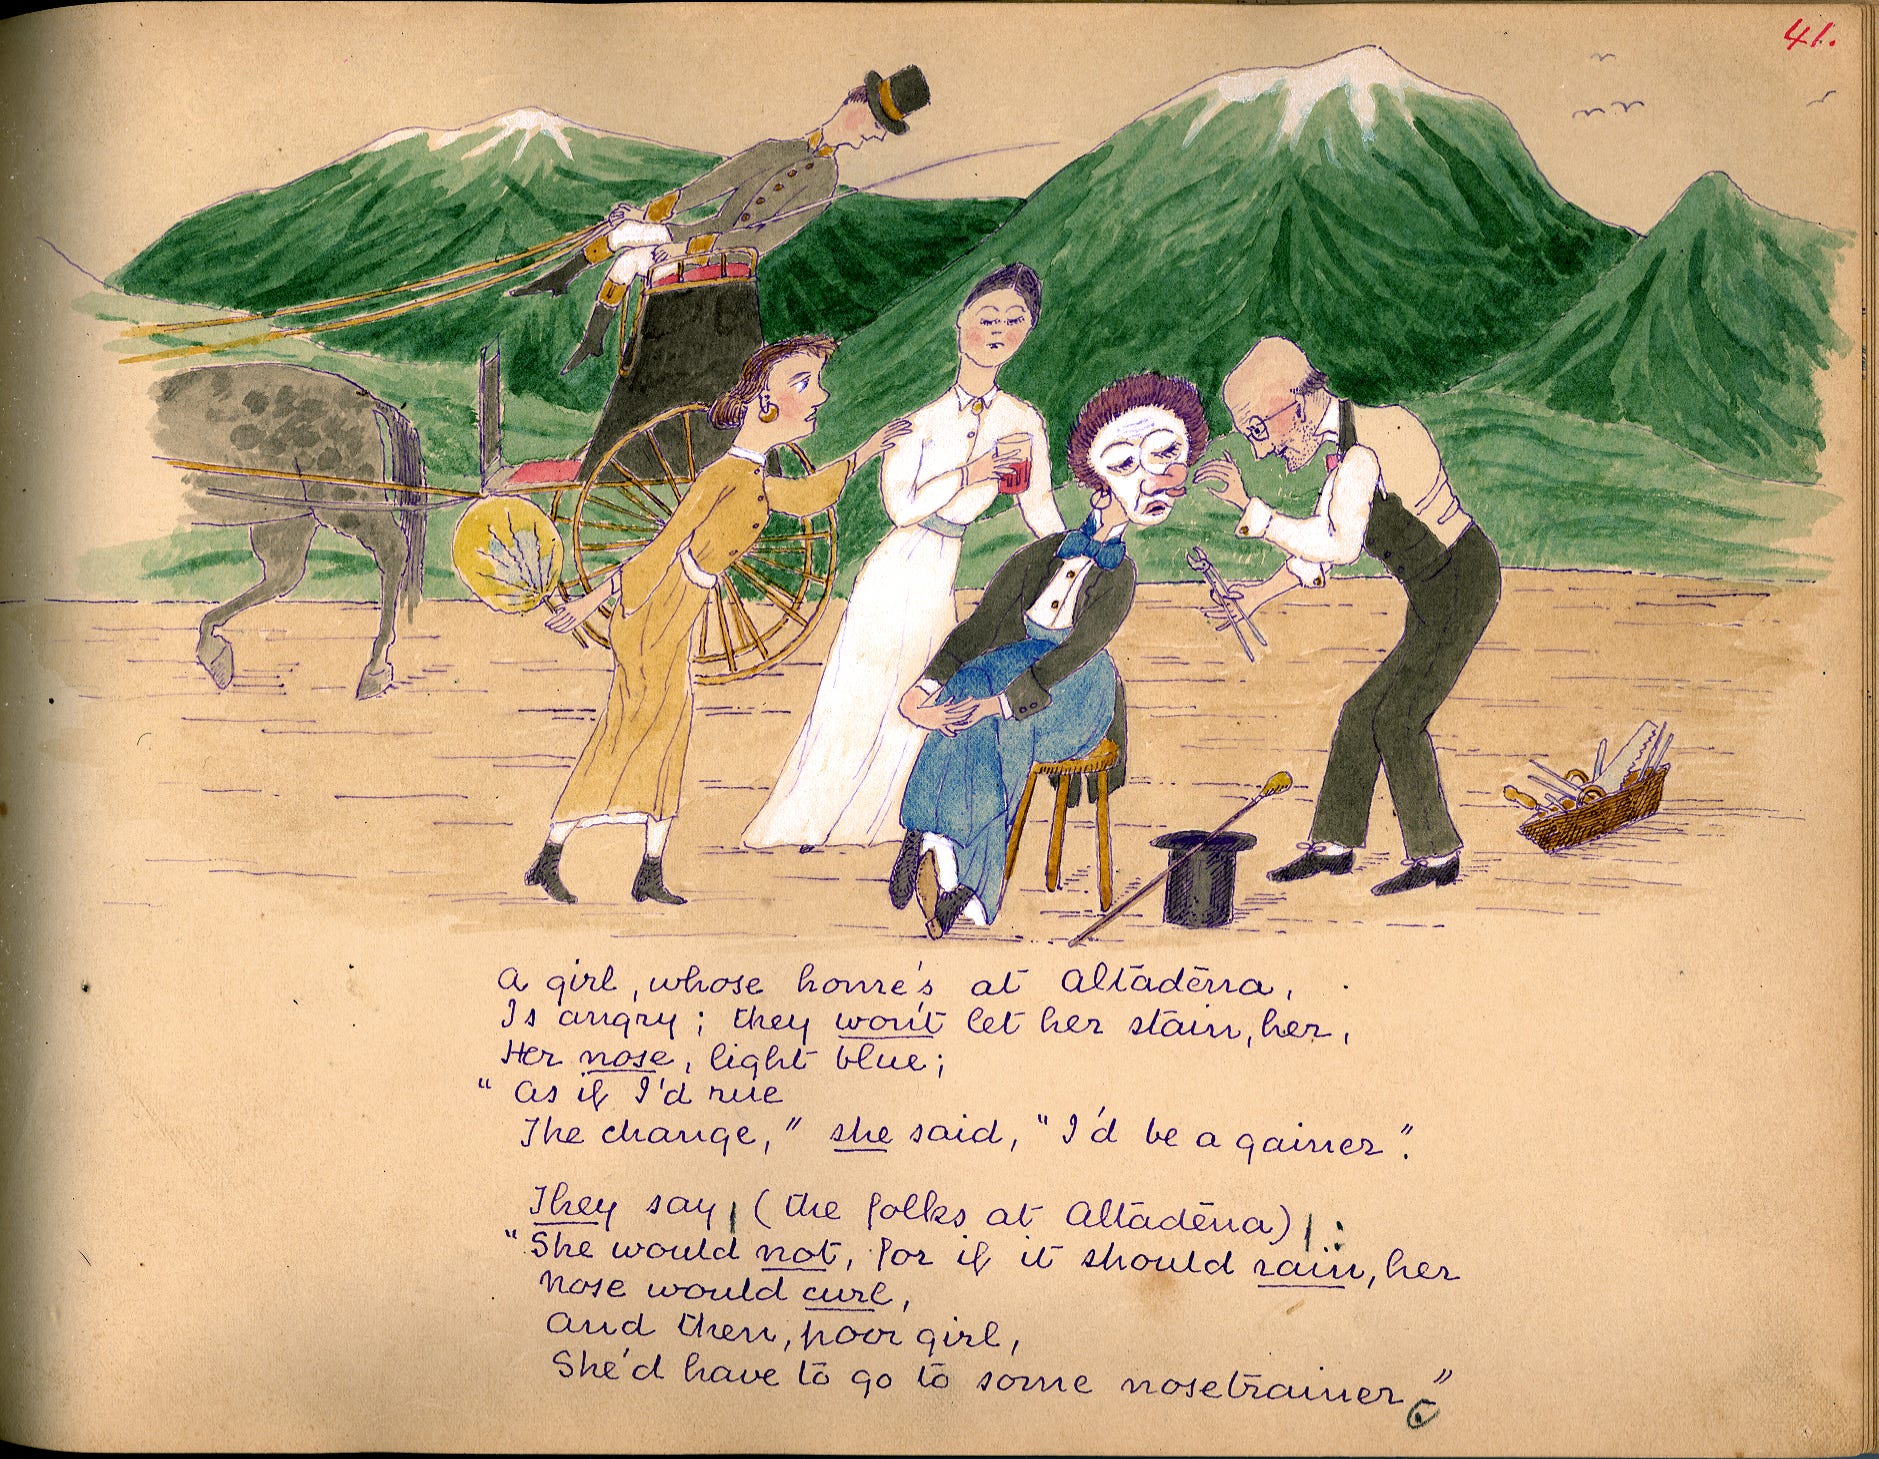 41.
A girl, whose home's at Altadena,
Is angry; they won't let her stain, her,
Her nose, light blue;
"As if I'd rue
The change," she said, "I'd be a gainer".
They say, (the folks at Altadena):
"She would not, for if it should rain, her
Nose would curl,
And then, poor girl,
She'd have to go to some nosetrainer."